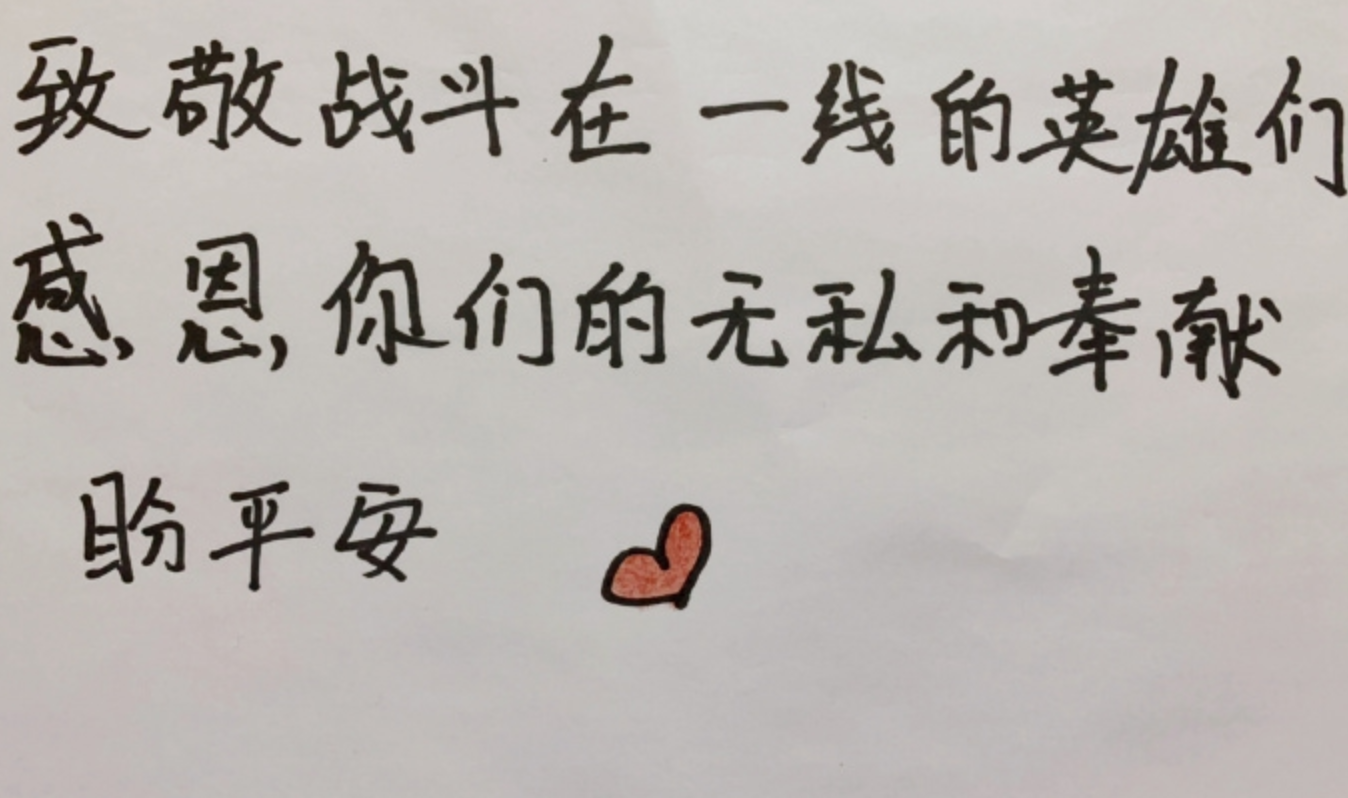 致敬战斗在一线的英雄们
感恩你们的无私和奉献
盼平安